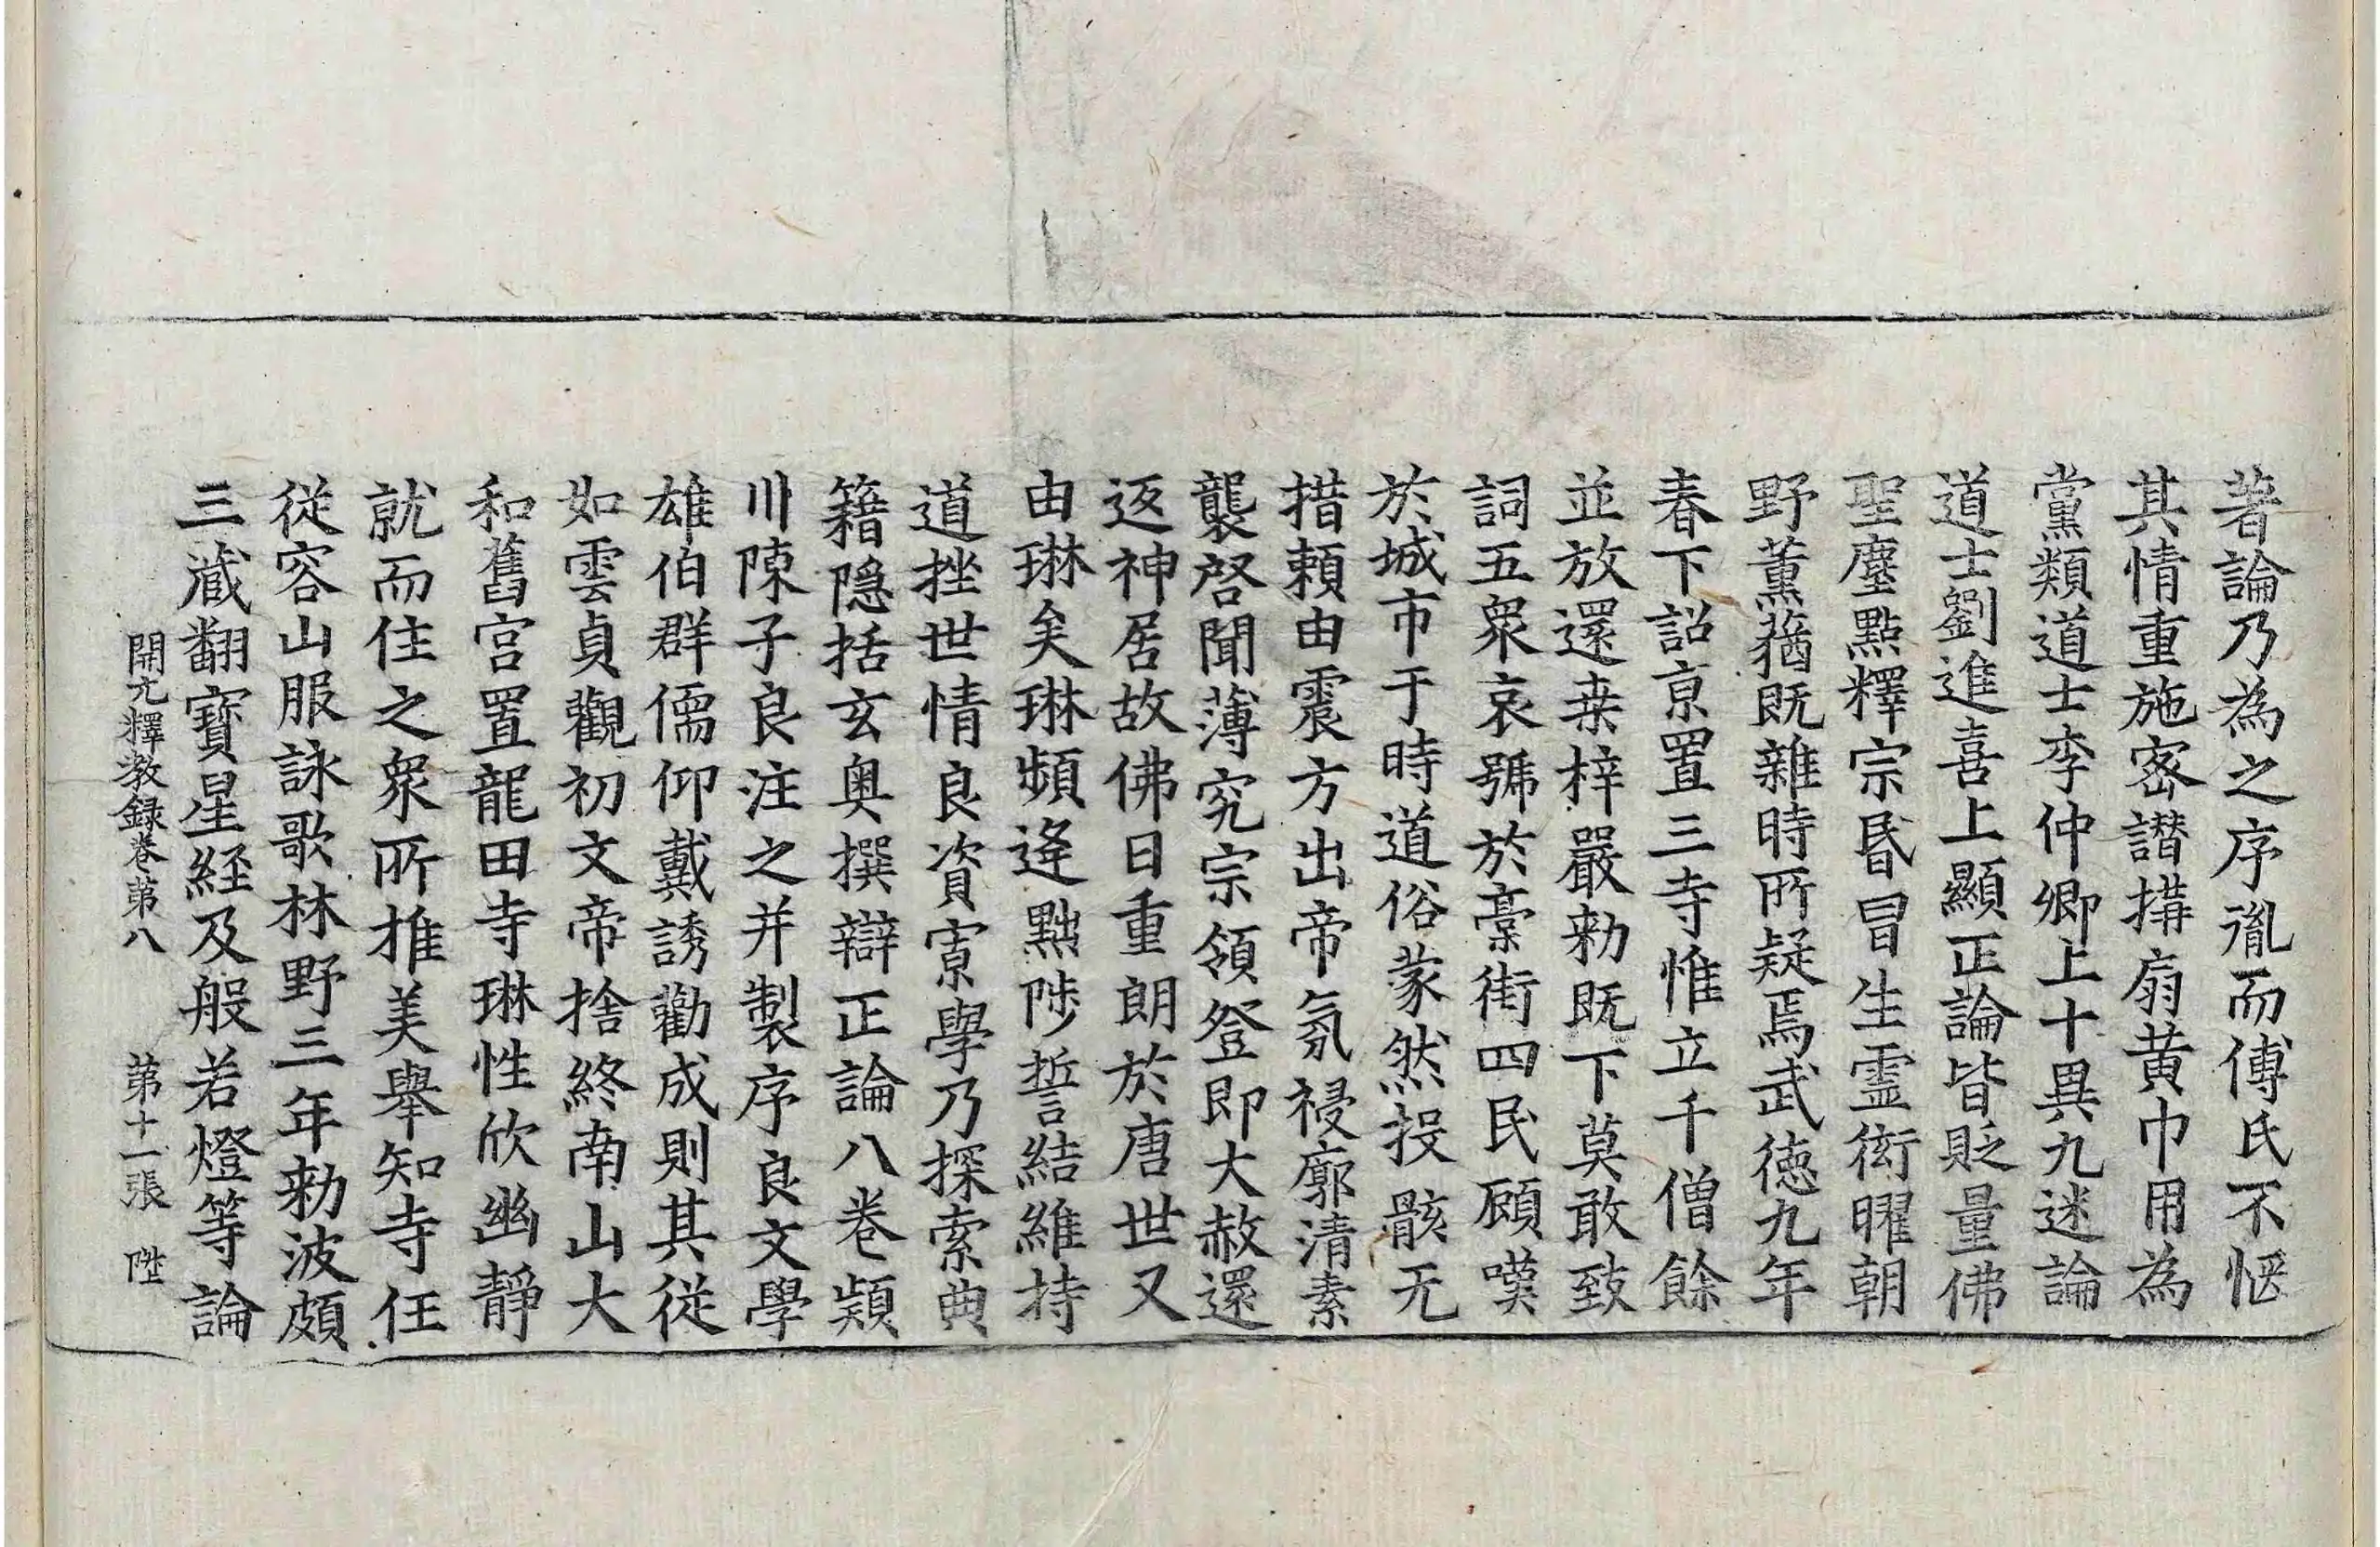 著論乃為之序胤而傅氏不惬
其情重施密譖搆扇黄巾用為
黨類道士李仲卿上十異九迷論
道士劉進喜上顯正論皆貶量佛
聖塵點釋宗昬冒生霊衒曜朝
野薫蕕既雜時所疑焉武徳九年
春下詔京置三寺惟立千僧餘
並放還桒梓嚴勑既下莫敢致
詞五衆哀號於藁街四民顧嘆
於城市于時道俗蒙然投骸无
措頼由震方出帝氛祲廓清素
襲啓聞薄究宗領登即大赦還
返神居故佛日重朗於唐世又
由琳矣琳頻逢黜陟誓結維持
道挫世情良資寡學乃探索典
籍隠括玄奥撰辯正論八巻潁
川陳子良注之并製序良文學
雄伯群儒仰戴誘勸成則其從
如雲貞觀初文帝捨終南山大
和舊宫置龍田寺琳性欣幽静
就而住之衆所推美舉知寺任
從容山服詠歌林野三年勑波頗
三藏翻寳星経及般若燈等論
開元釋教録巻第八 第十一張 陞